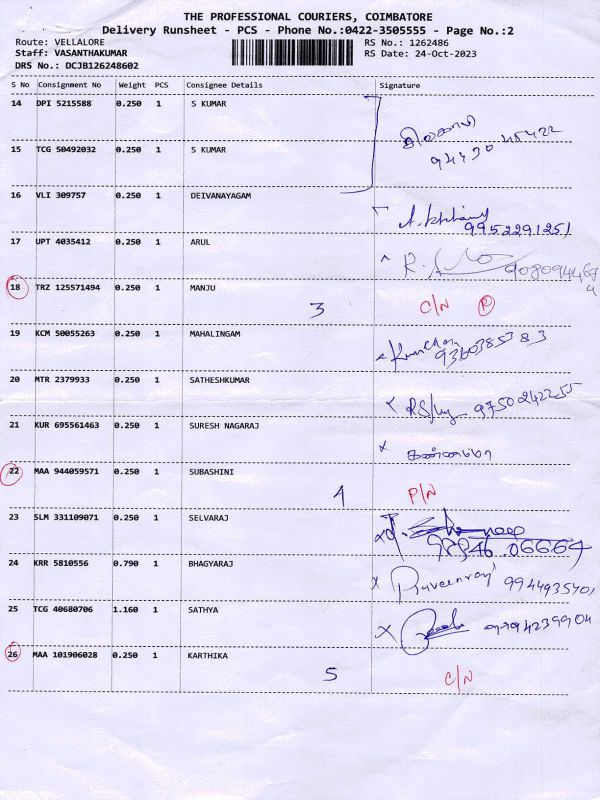 THE PROFESSIONAL COURIERS, COIMBATORE
Delivery Runsheet - PCS - Phone No.:0422-3505555 - Page No.:2
Route: VELLALORE RS No.: 1262486
Staff: VASANTHAKUMAR RS Date: 24-Oct-2023
DRS No.: DCJB126248602
S No Consignment No Weight PCS Consignee Details Signature
14 DPI 5215588 0.250 1 S KUMAR
94430 45422
15 TCG 50492032 0.250 1 S KUMAR
16 VLI 309757 0.250 1 DEIVANAYAGAM
9952291251
17 UPT 4035412 0.250 1 ARUL
18 TRZ 125571494 0.250 1 MANJU
3 C/N P
19 KCM 50055263 0.250 1 MAHALINGAM
9360385783
20 MTR 2379933 0.250 1 SATHESHKUMAR
9750242255
21 KUR 695561463 0.250 1 SURESH NAGARAJ
கண்ணம்மா
22 MAA 944059571 0.250 1 SUBASHINI
4 P/N
23 SLM 331109071 0.250 1 SELVARAJ
98846 06664
24 KRR 5810556 0.790 1 BHAGYARAJ
Praveenraj 9944935401
25 TCG 40680706 1.160 1 SATHYA
26 MAA 101906028 0.250 1 KARTHIKA
5 C/N